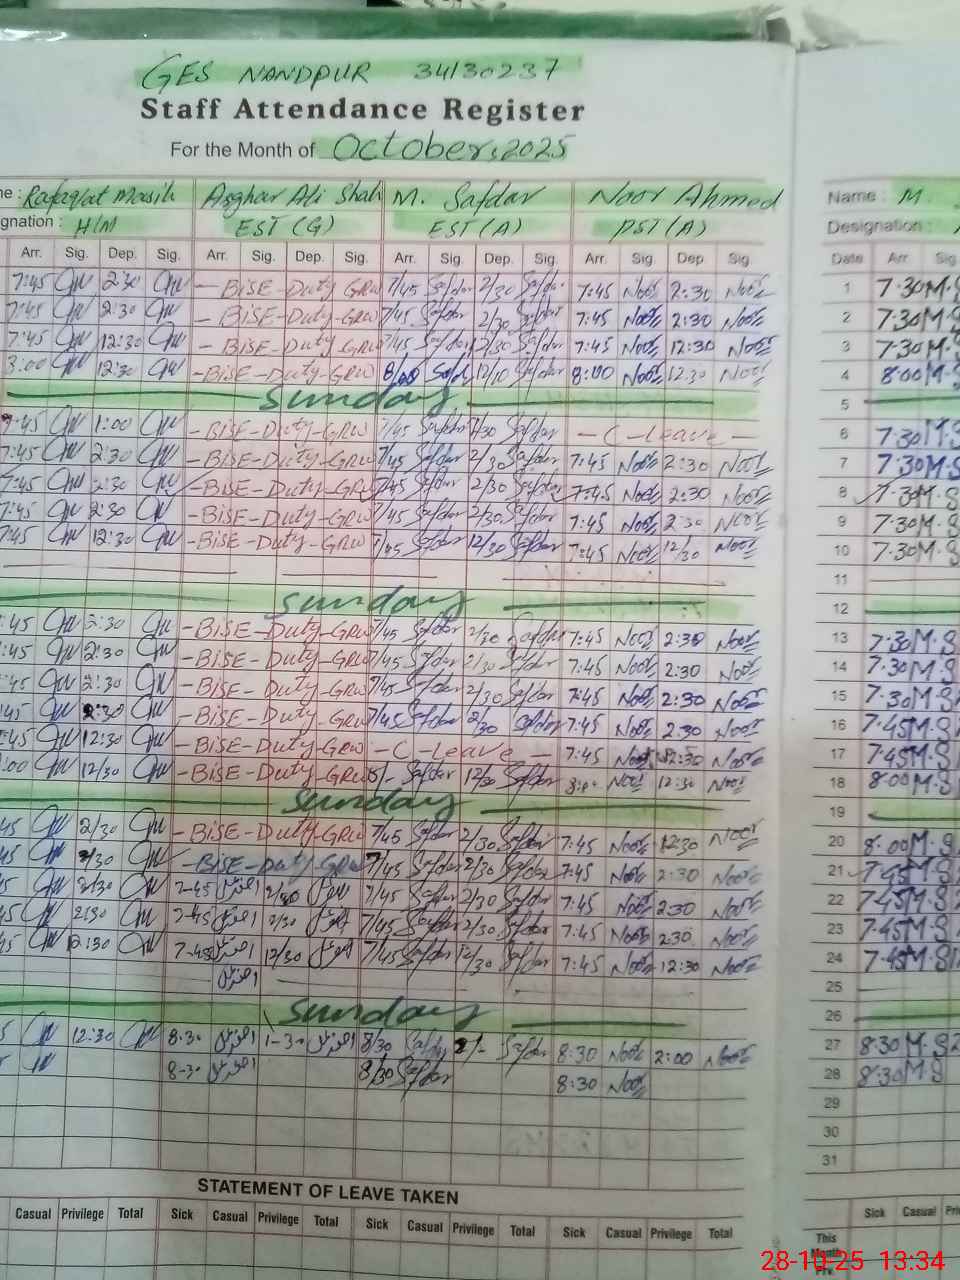 GES NANDPUR 34130237
Staff Attendance Register
For the Month of October, 2025
me : Rafaqat Masih Asghar Ali Shah M. Safdar Noor Ahmed Name : M.
signation : H/M EST (G) EST (A) PST (A) Designation :
Arr. Sig. Dep. Sig. Arr. Sig. Dep. Sig. Arr. Sig. Dep. Sig. Arr. Sig. Dep Sig. Date Arr Sig
7:45 2:30 - BiSE - Duty - GRW 7/45 Safdar 2/30 Safdar 7:45 Noor 2:30 Noor 1 7:30 M.S
7:45 2:30 - BiSE - Duty - GRW 7/45 Safdar 2/30 Safdar 7:45 Noor 2:30 Noor 2 7:30 M.S
7:45 12:30 - BiSE - Duty - GRW 7/45 Safdar 12/30 Safdar 7:45 Noor 12:30 Noor 3 7:30 M.S
8:00 12:30 - BiSE - Duty - GRW 12/10 Safdar 8:00 Noor 12:30 Noor 4 8:00 M.S
Sunday 5
7:45 1:00 - BiSE - Duty - GRW 7/45 Safdar 2/30 Safdar - C - Leave - 6 7:30 M.S
7:45 2:30 - BiSE - Duty - GRW 7/45 Safdar 2/30 Safdar 7:45 Noor 2:30 Noor 7 7:30 M.S
7:45 2:30 - BiSE - Duty - GRW 7/45 Safdar 2/30 Safdar 7:45 Noor 2:30 Noor 8 7:30 M.S
7:45 2:30 - BiSE - Duty - GRW 7/45 Safdar 2/30 Safdar 7:45 Noor 2:30 Noor 9 7:30 M.S
7:45 12:30 - BiSE - Duty - GRW 7/45 Safdar 12/30 Safdar 7:45 Noor 12/30 Noor 10 7:30 M.S
11
Sunday 12
:45 2:30 - BiSE - Duty - GRW 7/45 Safdar 2/30 Safdar 7:45 Noor 2:30 Noor 13 7:30 M.S
:45 2:30 - BiSE - Duty - GRW 7/45 Safdar 2/30 Safdar 7:45 Noor 2:30 Noor 14 7:30 M.S
:45 2:30 - BiSE - Duty - GRW 7/45 Safdar 2/30 Safdar 7:45 Noor 2:30 Noor 15 7:30 M.S
:45 2:30 - BiSE - Duty - GRW 7/45 Safdar 2/30 Safdar 7:45 Noor 2:30 Noor 16 7:45 M.S
:45 12:30 - BiSE - Duty - GRW - C - Leave - 7:45 Noor Noor 17 7:45 M.S
:00 12/30 - BiSE - Duty - GRW 8/- Safdar 12/30 Safdar Noor 12:30 Noor 18 8:00 M.S
Sunday 19
45 2/30 - BiSE - Duty - GRW 7/45 Safdar 2/30 Safdar 7:45 Noor Noor 20 8:00 M.S
45 - BiSE - Duty - GRW 7/45 Safdar 2/30 Safdar 7:45 Noor 2:30 Noor 21 7:45 M.S
45 2/30 7-45 2/30 7/45 Safdar 2/30 Safdar 7:45 Noor 2:30 Noor 22 7:45 M.S
45 2:30 7-45 2/30 7/45 Safdar 2/30 Safdar 7:45 Noor 2:30 Noor 23 7:45 M.S
45 12:30 7-45 12/30 7/45 Safdar 12/30 Safdar 7:45 Noor 12:30 Noor 24 7:45 M.S
25
Sunday 26
12:30 8-30 1-30 8/30 Safdar 2/- Safdar 8:30 Noor 2:00 Noor 27 8:30 M.S
8-30 8/30 Safdar 8:30 Noor 28 8:30 M.S
29
30
31
STATEMENT OF LEAVE TAKEN
Casual Privilege Total Sick Casual Privilege Total Sick Casual Privilege Total Sick Casual Privilege Total Sick Casual Pri
This
Month
Prv.
28-10-25 13:34